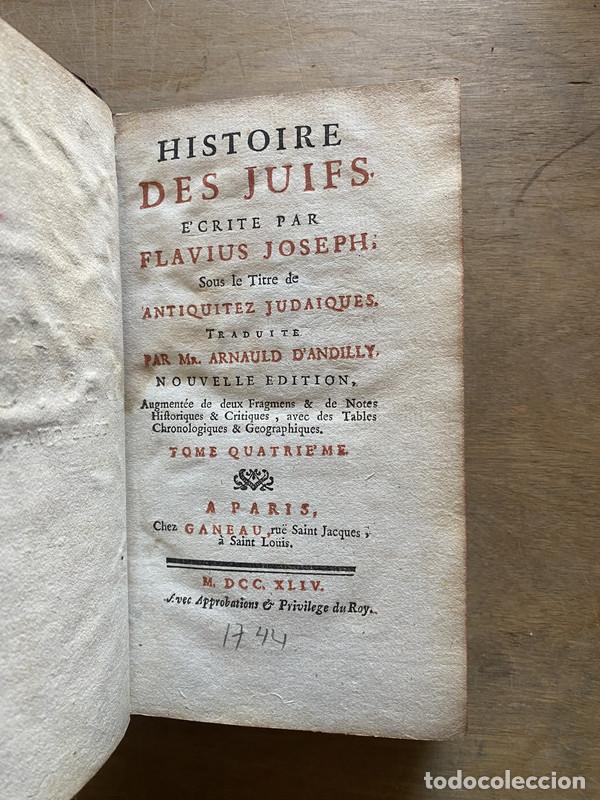 HISTOIRE
DES JUIFS.
E'CRITE PAR
FLAVIUS JOSEPH;
Sous le Titre de
ANTIQUITEZ JUDAIQUES.
TRADUITE
PAR MR. ARNAULD D'ANDILLY,
NOUVELLE EDITION,
Augmentée de deux Fragmens & de Notes
Historiques & Critiques, avec des Tables
Chronologiques & Geographiques.
TOME QUATRIE'ME.
A PARIS,
Chez GANEAU, ruë Saint Jacques,
à Saint Louis.
M. DCC. XLIV.
Avec Approbations & Privilege du Roy.
1744
todocoleccion